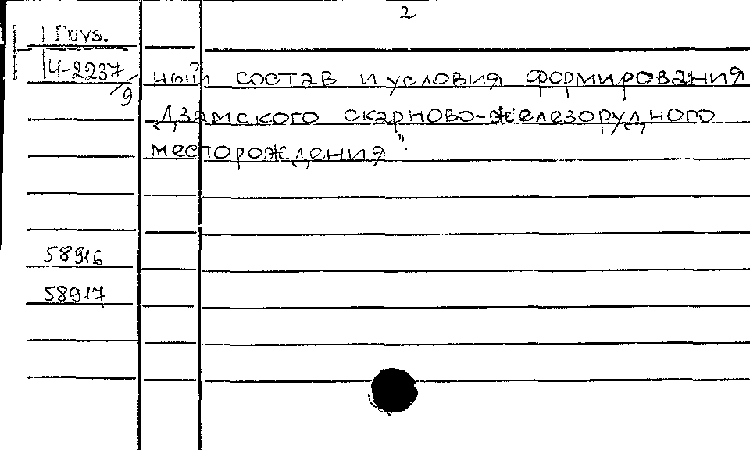 2
1 Груз.
Ч-2237/9
ный состав и условия формирования
Дзамского скарново-железорудного
месторождения".
58916
58917